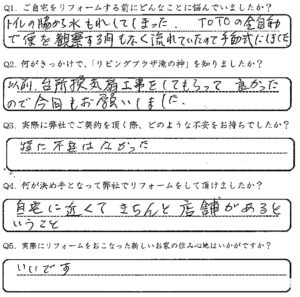 Q1. ご自宅をリフォームする前にどんなことに悩んでいましたか?
トイレの脇から水もれしてしまった. TOTOの全自動
で便を観察する間もなく流れていたので手動式にした
Q2. 何がきっかけで、「リビングプラザ滝の神」を知りましたか?
以前、台所換気扇工事をしてもらって 良かった
ので今回もお願いしました.
Q3. 実際に弊社でご契約を頂く際、どのような不安をお持ちでしたか?
特に不安はなかった
Q4. 何が決め手となって弊社でリフォームをして頂けましたか?
自宅に近くて きちんと店舗があると
いうこと
Q5. 実際にリフォームをおこなった新しいお家の住み心地はいかがですか?
いいです